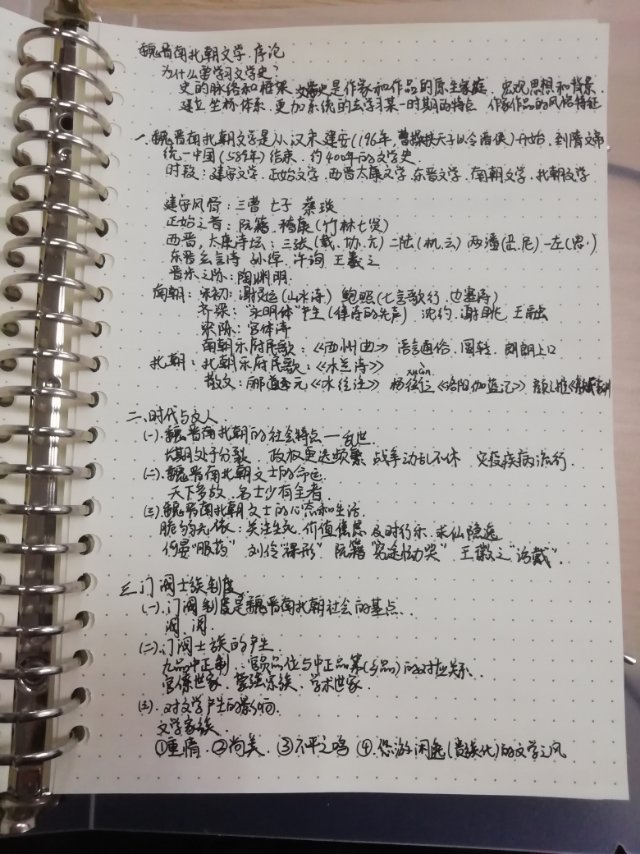 魏晋南北朝文学·序论
为什么要学习文学史?
史的脉络和框架 文学史是作家和作品的原生家庭 宏观思想和背景
建立坐标体系 更加系统的去学习某一时期的特点 作家作品的风格特征
一、魏晋南北朝文学是从汉末建安(196年,曹操挟天子以令诸侯)开始,到隋文帝
统一中国(589年)结束,约400年的文学史
时段:建安文学 正始文学 西晋太康文学 东晋文学 南朝文学 北朝文学
建安风骨:三曹 七子 蔡琰
正始之音:阮籍 嵇康(竹林七贤)
西晋,太康诗坛:三张(载、协、亢) 二陆(机、云) 两潘(岳、尼) 一左(思)
东晋玄言诗 孙绰 许询 王羲之
晋宋之际:陶渊明
南朝:宋初:谢灵运(山水诗) 鲍照(七言歌行 边塞诗)
齐梁:"永明体"产生(律诗的先声) 沈约 谢朓 王融
梁陈:宫体诗
南朝乐府民歌:《西洲曲》语言通俗、圆转、朗朗上口
北朝:北朝乐府民歌:《木兰诗》
xuàn
散文:郦道元《水经注》 杨衒之《洛阳伽蓝记》 颜之推《颜氏家训
二、时代与文人
(一).魏晋南北朝的社会特点—乱世
长期处于分裂 政权更迭频繁 战争动乱不休 灾疫疾病流行
(二).魏晋南北朝文士的命运
天下多故,名士少有全者
(三)魏晋南北朝文士的心态和生活
脆弱无依:关注生死 价值焦虑 及时行乐 求仙隐逸
何晏"服药" 刘伶"裸形" 阮籍"穷途恸哭" 王徽之"访戴"
三、门阀士族制度
(一).门阀制度是魏晋南北朝社会的基点
阀 阅
(二).门阀士族的产生
九品中正制:官员品位与中正品第(乡品)的对应关系
官僚世家、豪强宗族、学术世家
(三).对文学产生的影响
文学家族
①重情 ②尚美 ③不平之鸣 ④悠游闲逸(贵族化)的文学之风